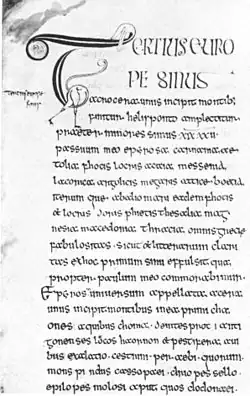 TERTIUS EURO
PE SINUS
acroceraunis incipit montibus
finitur helisponto amplectitur
praeter minores sinus XIX XXU
passuum in eo epiros acarnania ae
tolia phocis locris acaia messenia
laconica argolis megaris attice boetia
iterumque ab alio mari eadem phocis
et locris doris phietis thesalia mag
nesia macedonia thracia omnis greciae
fabulositas sicut et litterarum clari
tas ex hoc primum sinu effulsit qua
propter paululum in eo commorabimur
Epiros in universum appellata a cerau
nis incipit montibus in ea primi cha
ones a quibus chaonia dein tes proti anti
gonenses locus aornon et pestifera avi
bus exalatio cestrini perraebi quorum
mons pindus cassopaei driopes selloe
ellopes molossi aput quos dodonaei